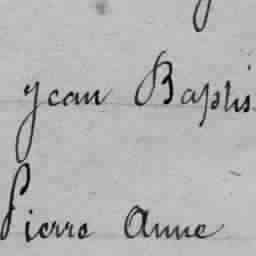 Jean Baptis
Pierre Anne